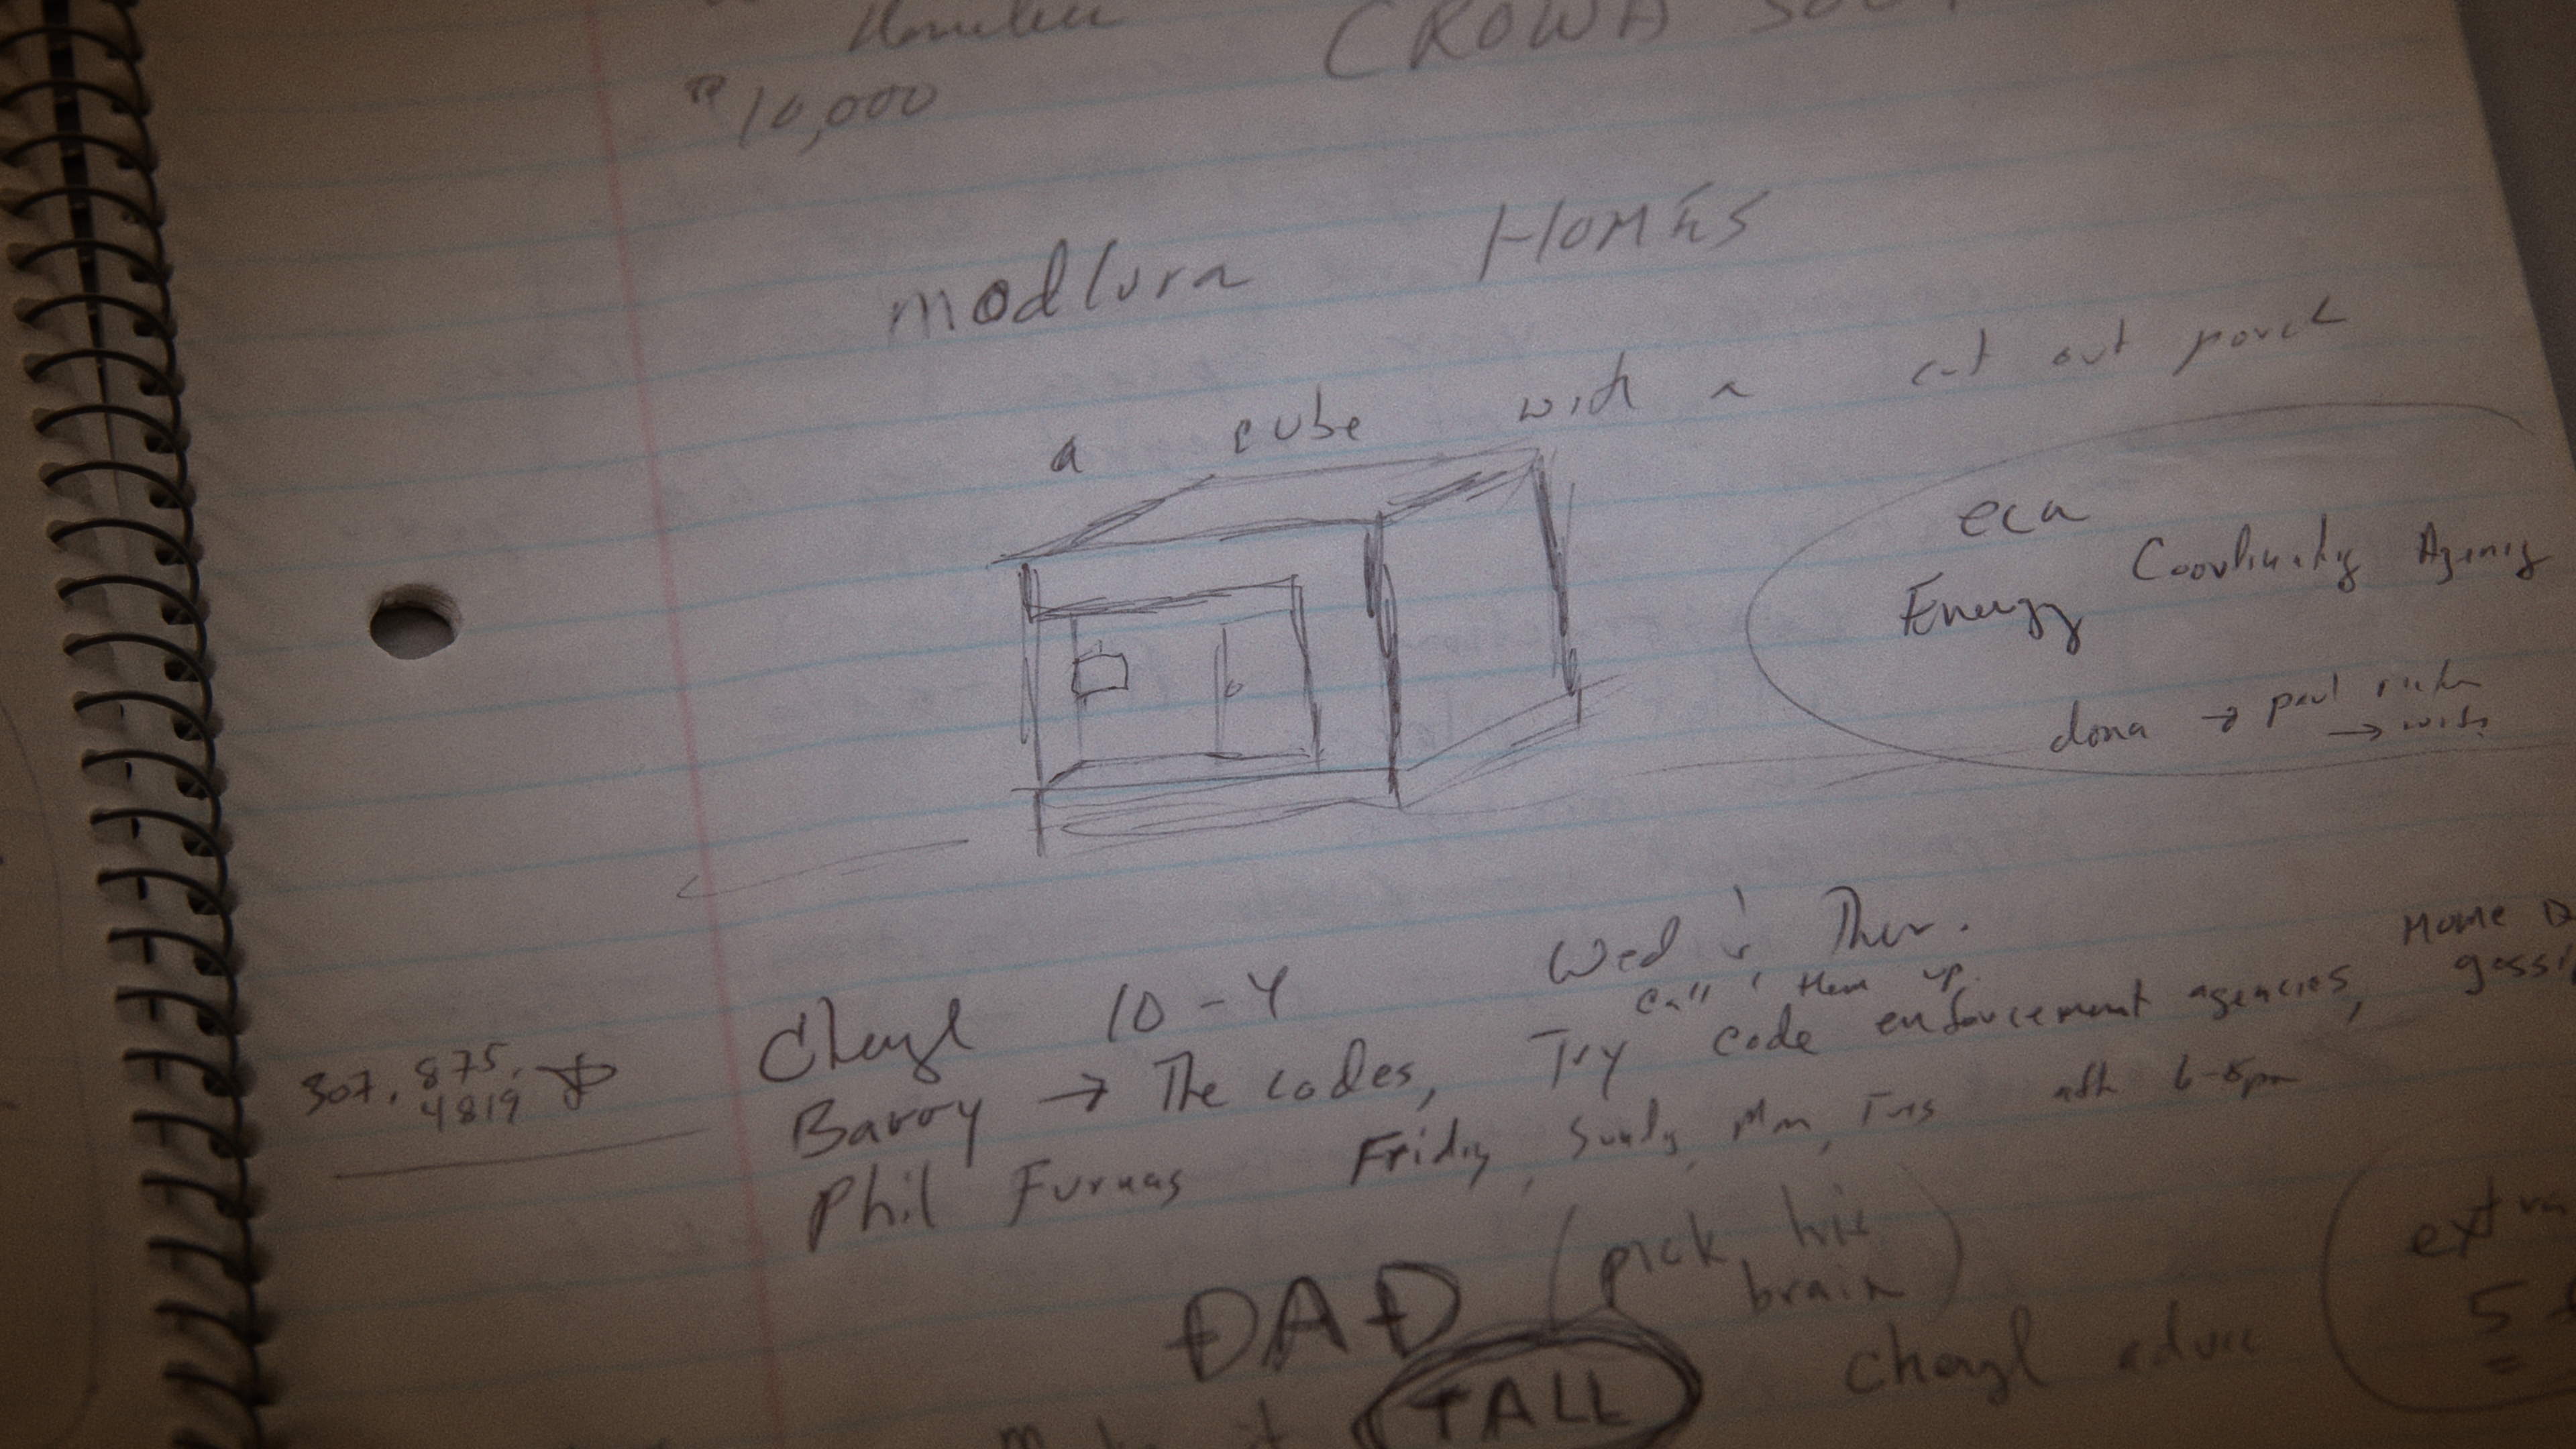 Homeless
CROWD
$10,000
modlura Homes
a cube with a cut out porch
eca
Energy Coordinating Agency
dona → paul
→
Cheryl 10-4 Wed & Thur.
call them up.
307. 875.
4819
Barry → The codes, Try code enforcement agencies, Home D
gossi
Phil Furnas Friday, Sunday, Mon, Tues aft 6-8pm
DAD (pick his
brain)
TALL
Cheryl advice
extra
5